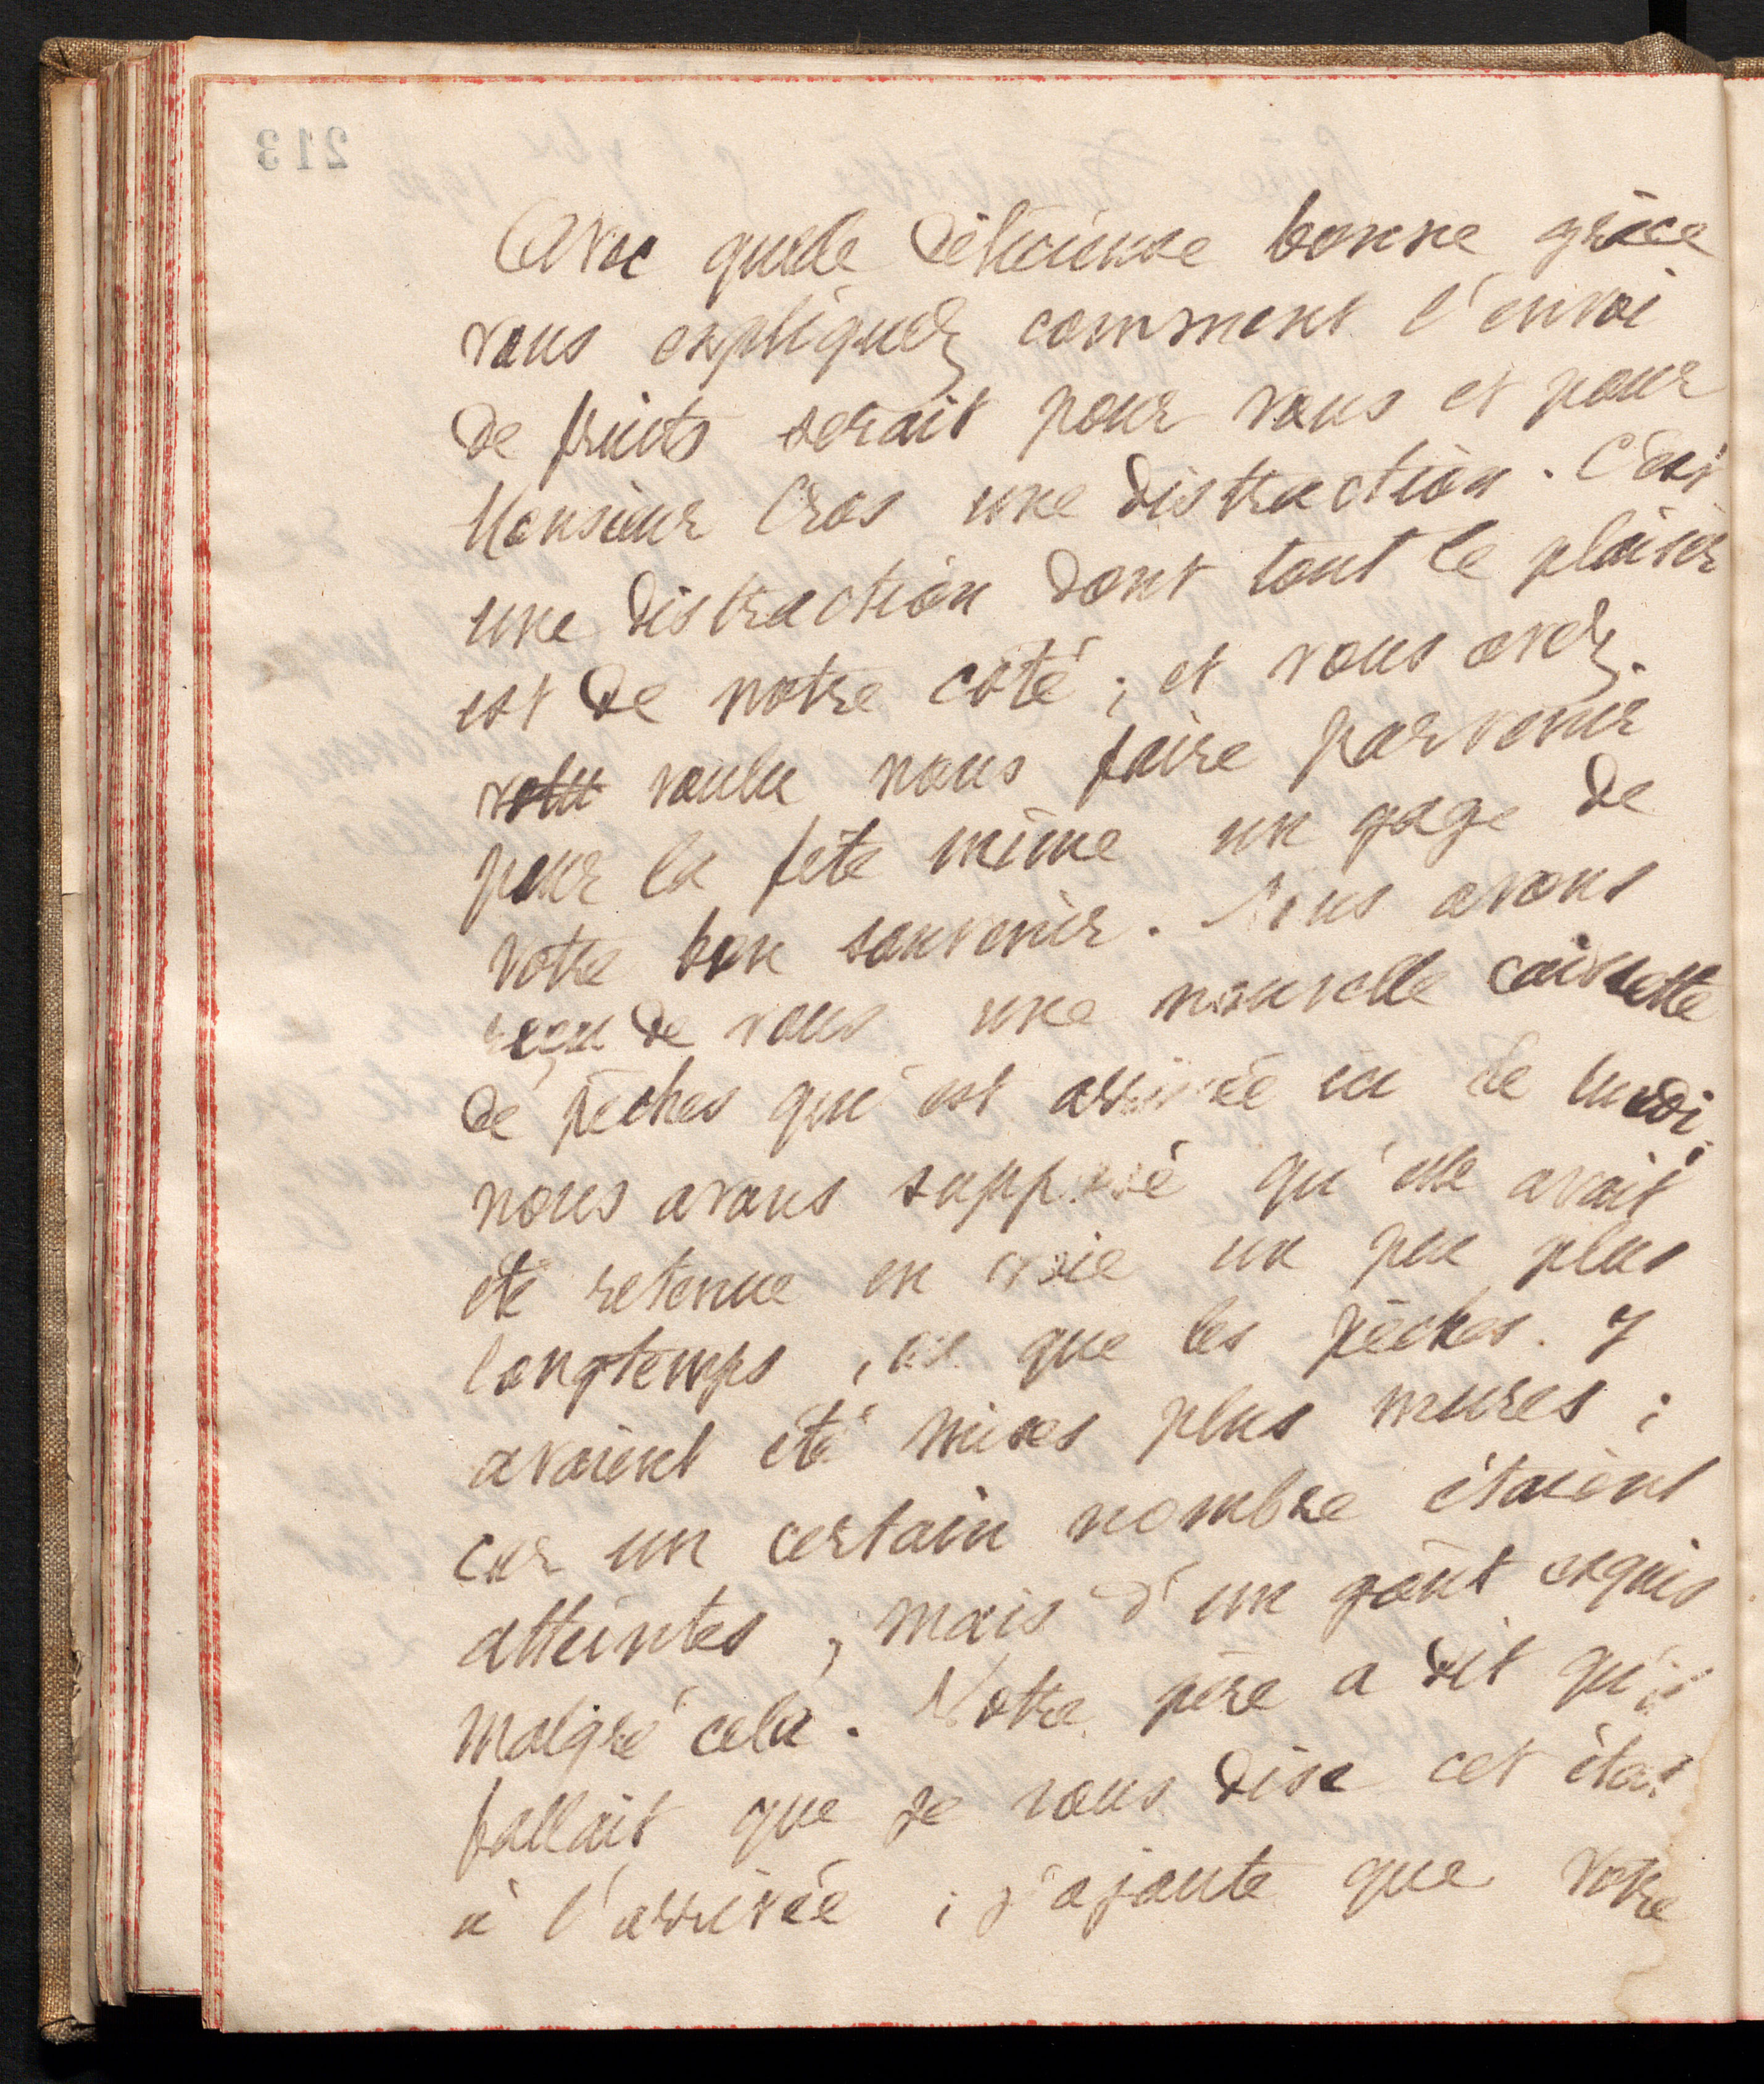 213
Avec quelle délicieuse bonne grâce
vous expliquez comment l'envoi
de fruits serait pour vous et pour
Monsieur Cros une distraction. C'est
une distraction dont tout le plaisir
est de notre coté ; et vous avez
voulu nous faire parvenir
pour la fête même un gage de
votre bon souvenir. Nous avons
reçu de vous une nouvelle caissette
de pêches qui est arrivée ici le lundi ;
nous avons supposé qu'elle avait
été retenue en voie un peu plus
longtemps, ou que les pêches y
avaient été mises plus mures ;
car un certain nombre étaient
atteintes, mais d'un goût exquis
malgré cela. Notre père a dit qu'il
fallait que je vous dise cet état
à l'arrivée ; j'ajoute que votre